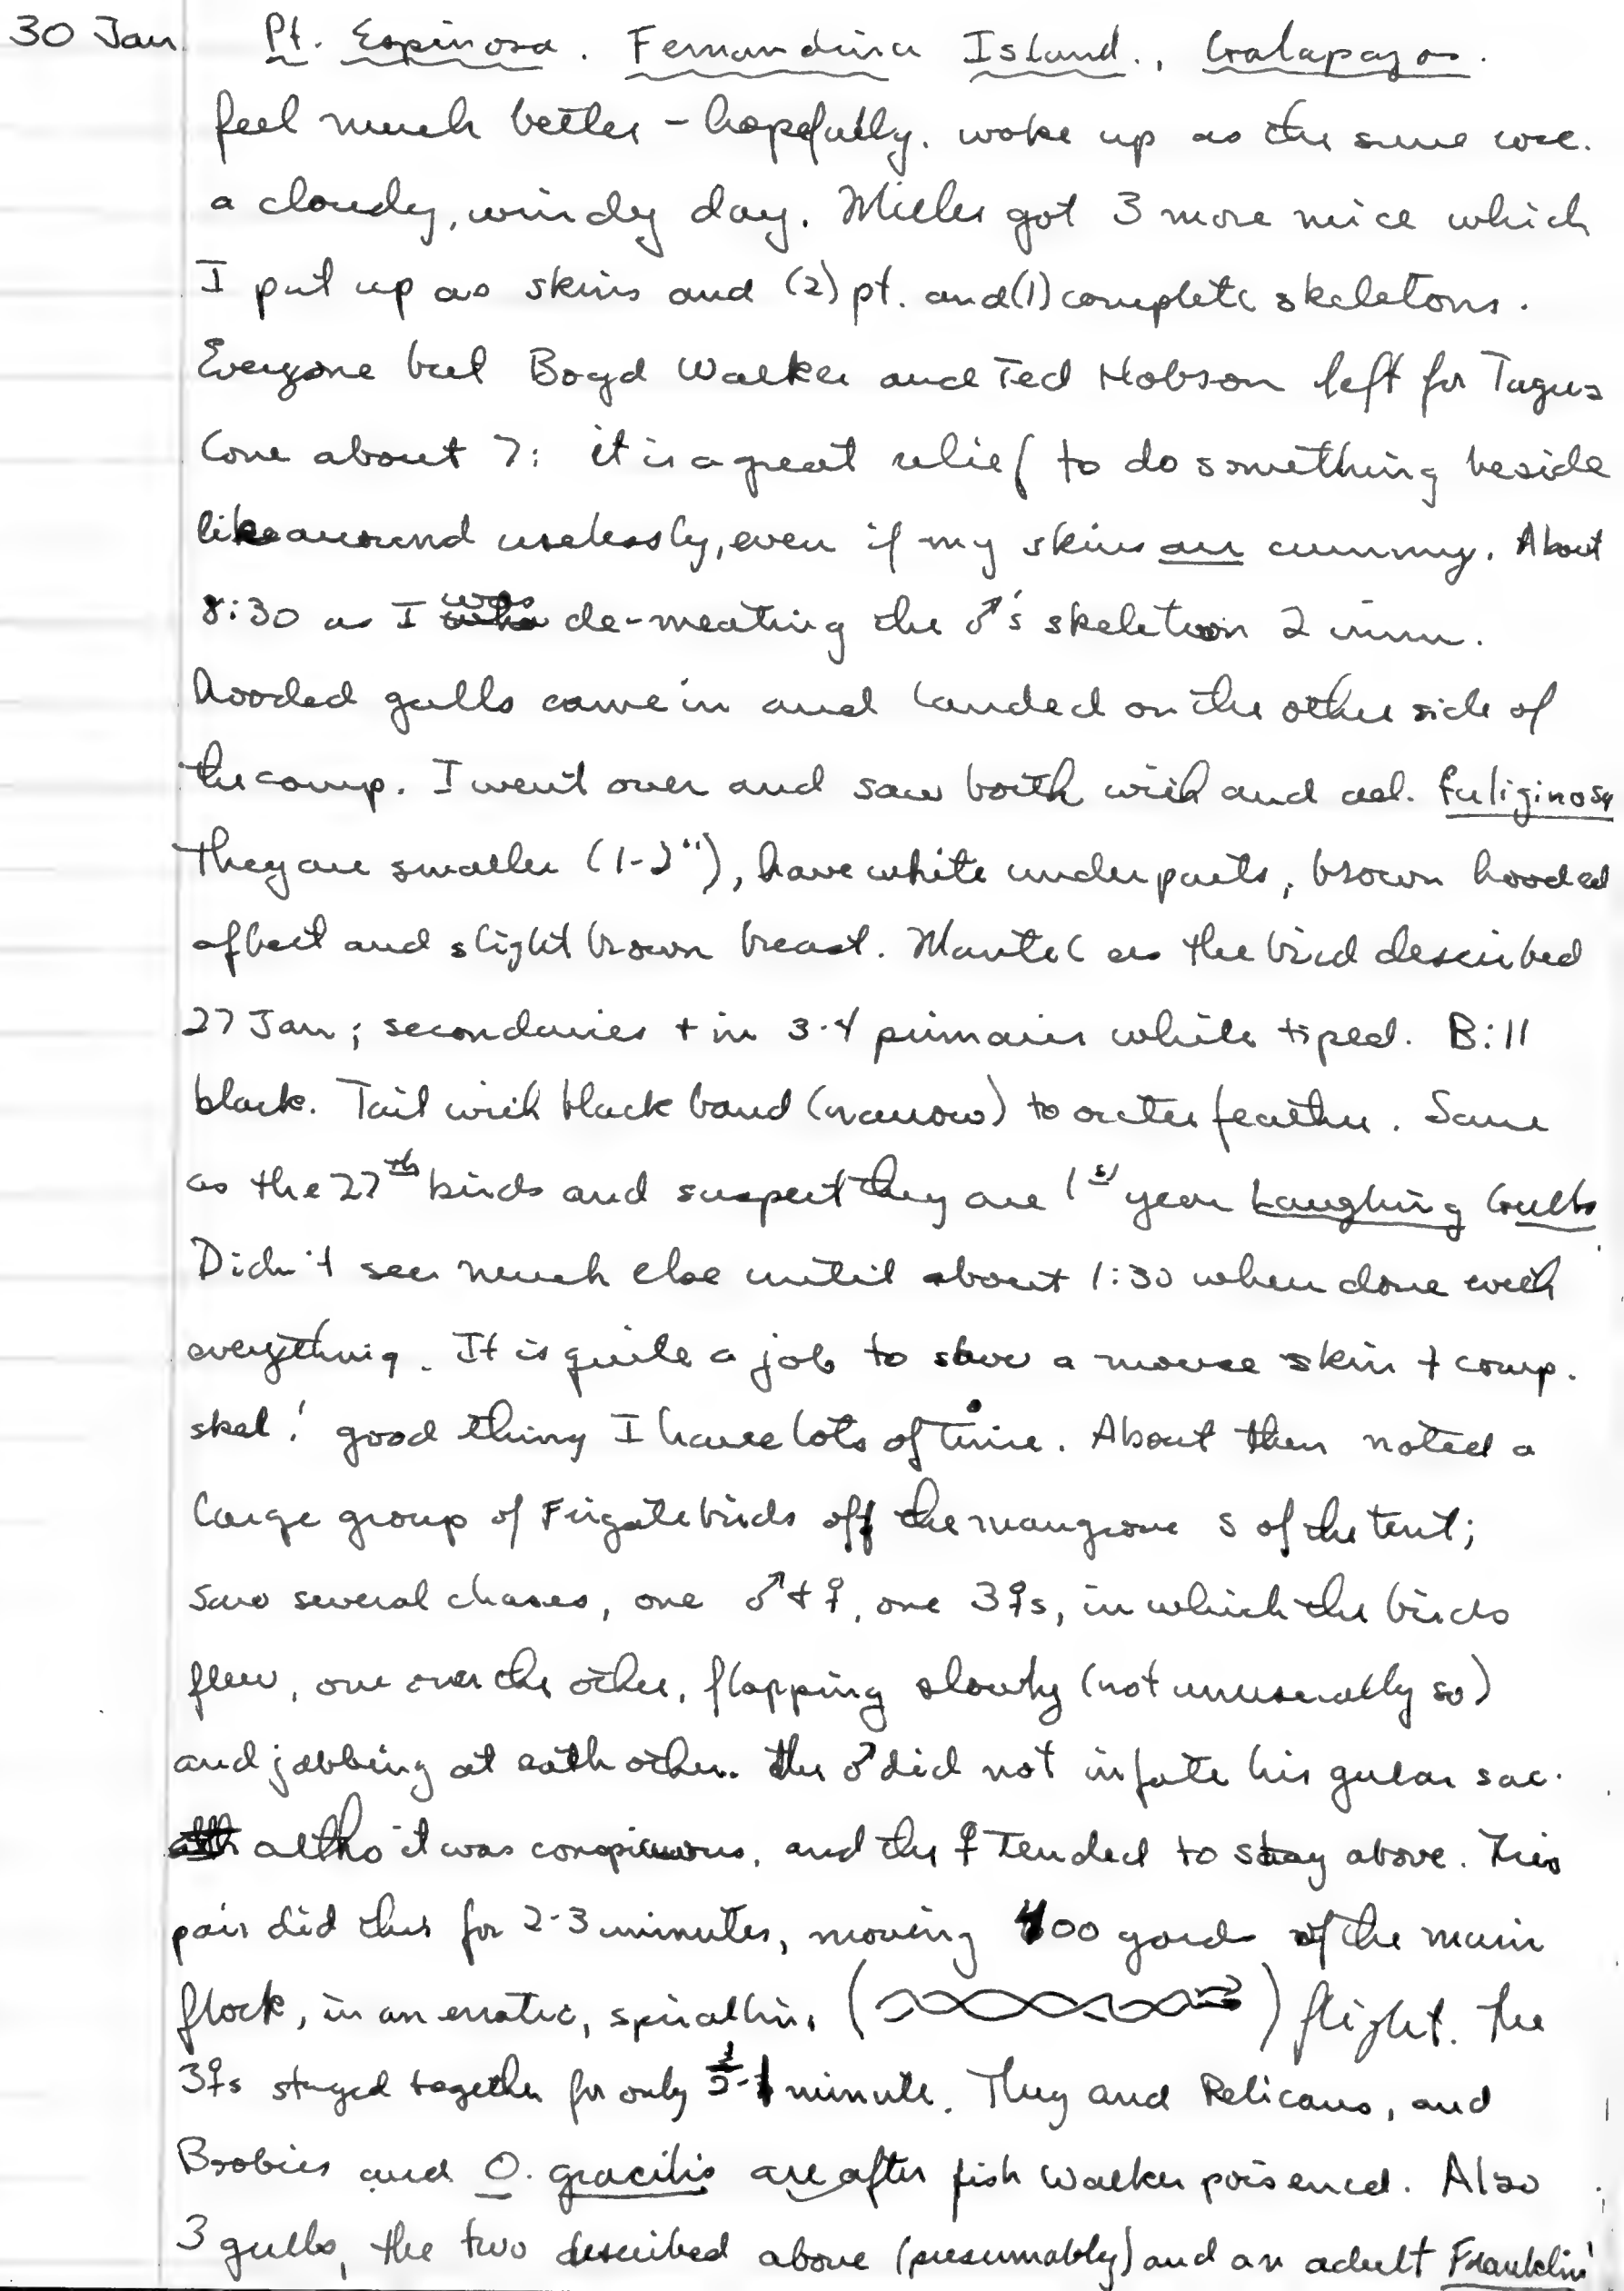 30 Jan Pt. Espinosa. Fernandina Island., Galapagos.
feel much better – hopefully. woke up as the same
a cloudy, windy day. Miller got 3 more mice which
I put up as skins and (2) pt. and (1) complete skeletons.
Everyone but Boyd Walker and Ted Hobson left for Tagus
Cove about 7: it is a great relief to do something beside
lie around uselessly, even if my skins are crummy. About
8:30 as I was de-meating the ♂'s skeleton 2 imm.
hooded gulls came in and landed on the other side of
the camp. I went over and saw both with and ad. fuliginosa
They are smaller (1-2"), have white underparts, brown hooded
affect and slight brown breast. Mantel as the bird described
27 Jan; secondaries + in 3-4 primaries white tiped. Bill
black. Tail with black band (narrow) to outer feather. Same
as the 27th birds and suspect they are 1st year Laughing Gulls
Didn't see much else until about 1:30 when done with
everything. It is quite a job to save a mouse skin + comp.
skel! good thing I have lots of time. About then noted a
large group of Frigatebirds off the mangrove S of the tent;
saw several chases, one ♂ + ♀, one 3♀s, in which the birds
flew, one over the other, flapping slowly (not unusually so)
and jabbing at eath other. the ♂ did not infate his gular sac.
altho it was conspicuous, and the ♀ tended to stay above. This
pair did this for 2-3 minutes, moving 400 yards of the main
flock, in an erratic, spiralling ( ) flight. The
3♀s stayed together for only ½-1 minute. They and Pelicans, and
Boobies and O. gracilis are after fish Walker poisened. Also
3 gulls, the two described above (presumably) and an adult Franklin'